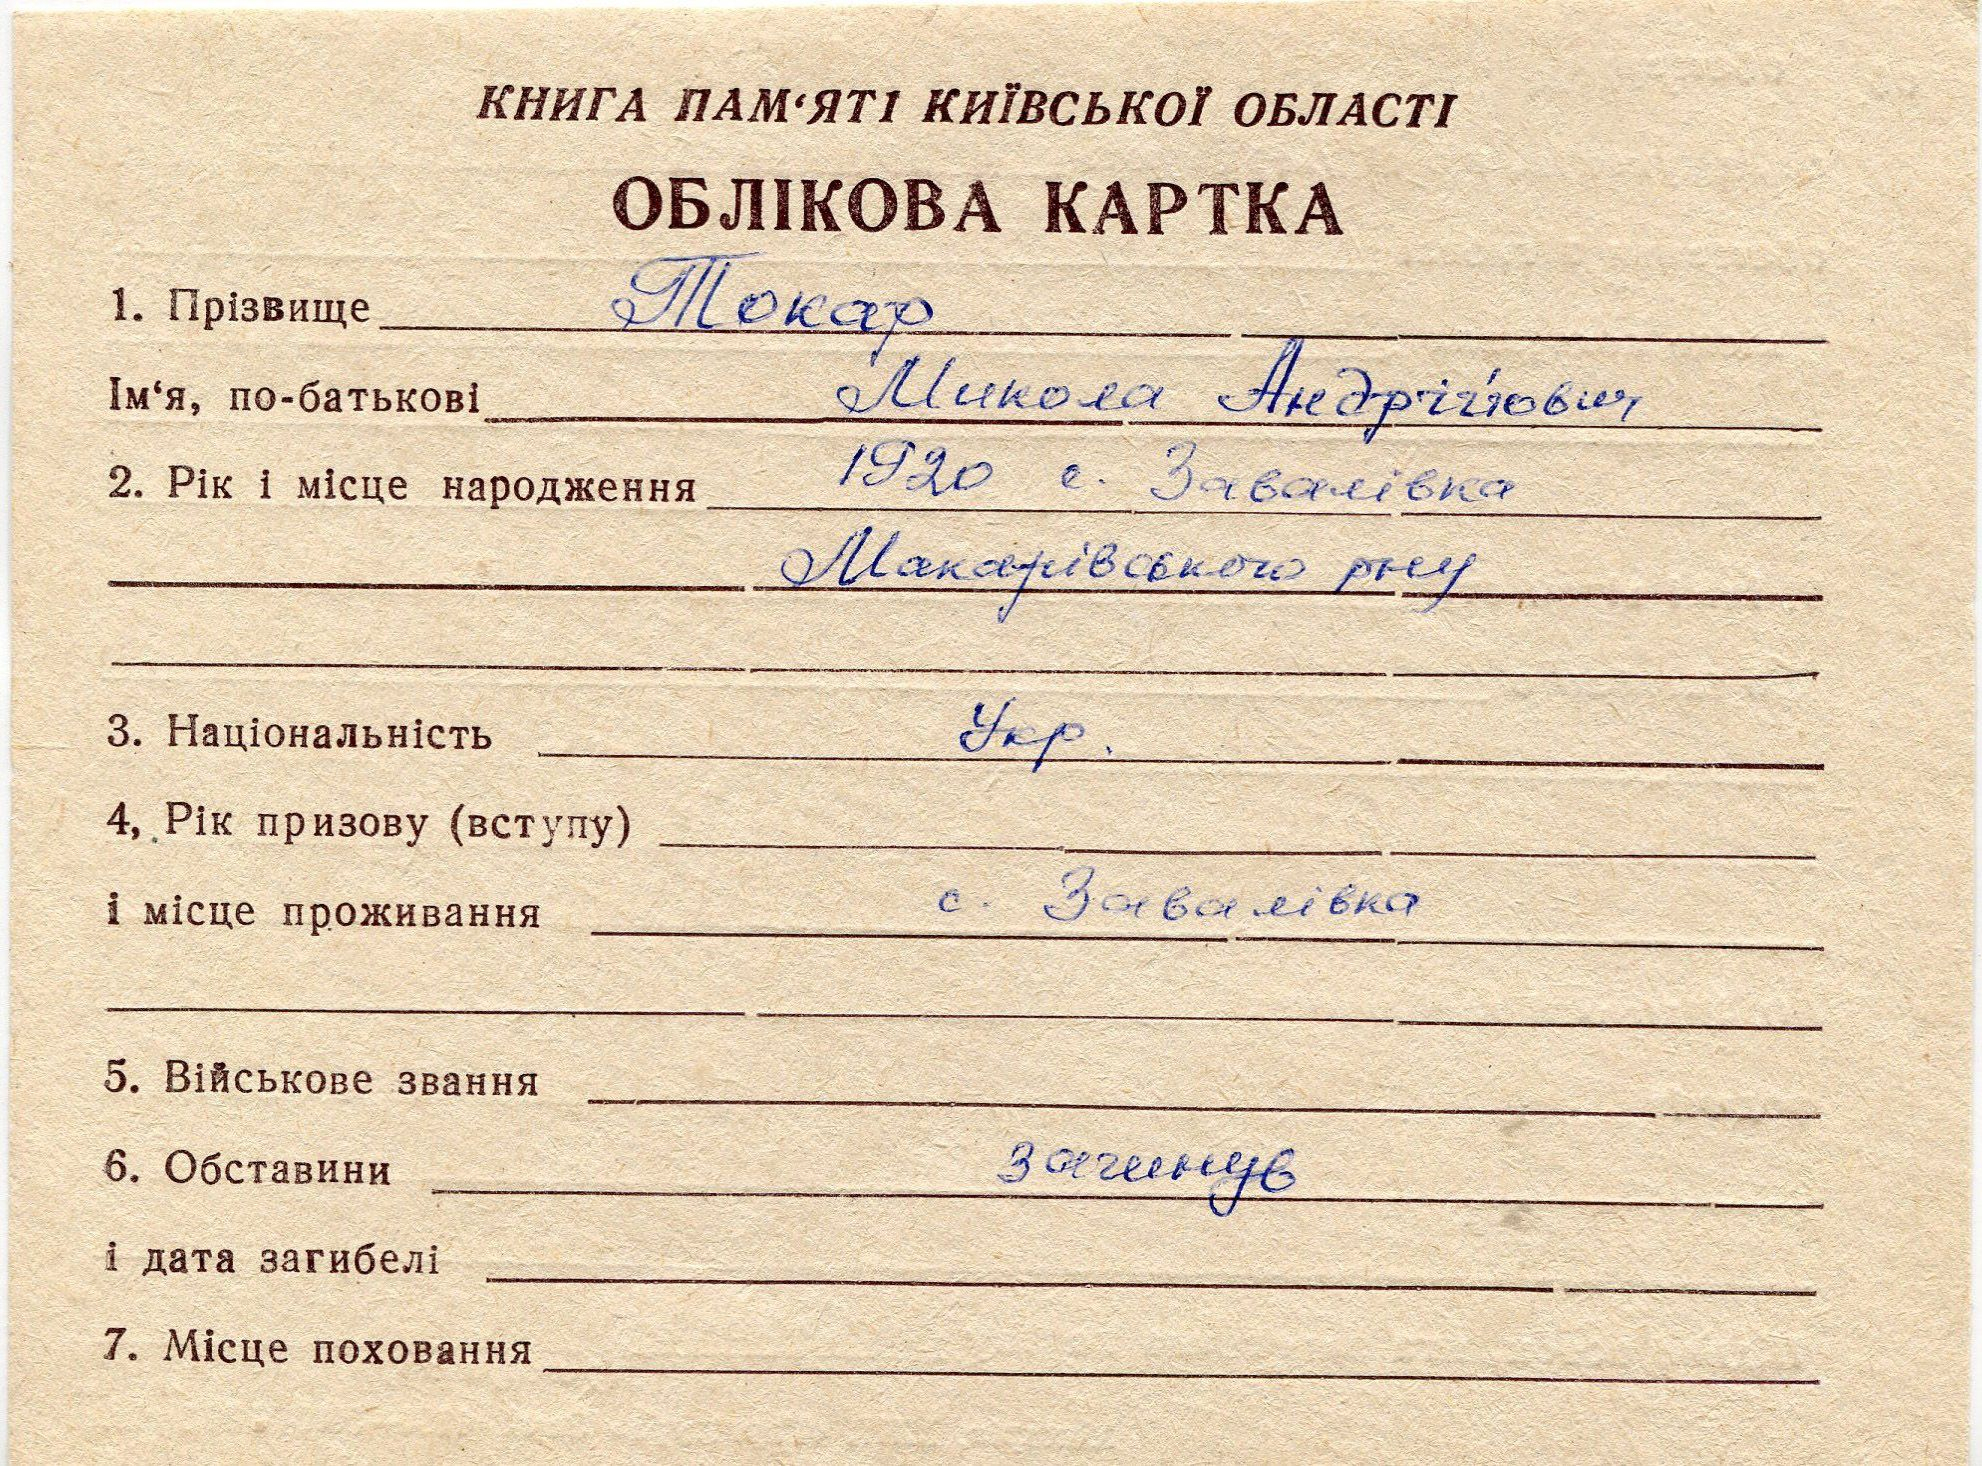 КНИГА ПАМ‘ЯТІ КИЇВСЬКОЇ ОБЛАСТІ
ОБЛІКОВА КАРТКА
1. Прізвище Токар
Ім‘я, по-батькові Микола Андрійович
2. Рік і місце народження 1920 с. Завалівка
Макарівського рну
3. Національність Укр.
4, Рік призову (вступу)
і місце проживання с. Завалівка
5. Військове звання
6. Обставини загинув
і дата загибелі
7. Місце поховання